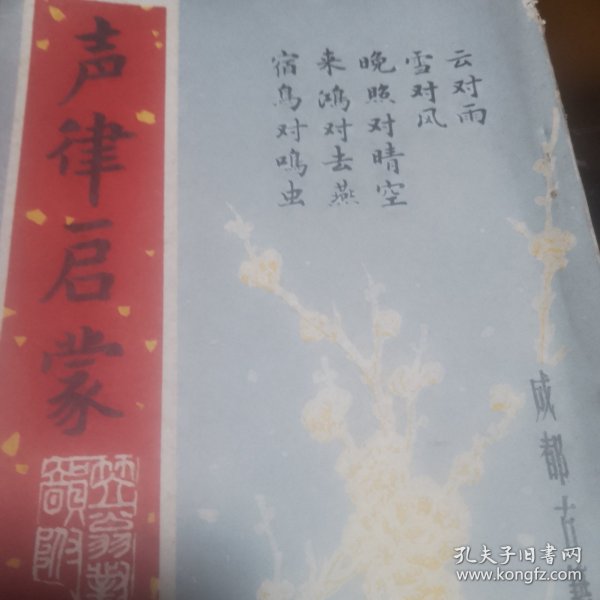 声律启蒙
云对雨
雪对风
晚照对晴空
来鸿对去燕
宿鸟对鸣虫
笠翁对韵附
成都古
孔夫子旧书网
www.kongfz.com